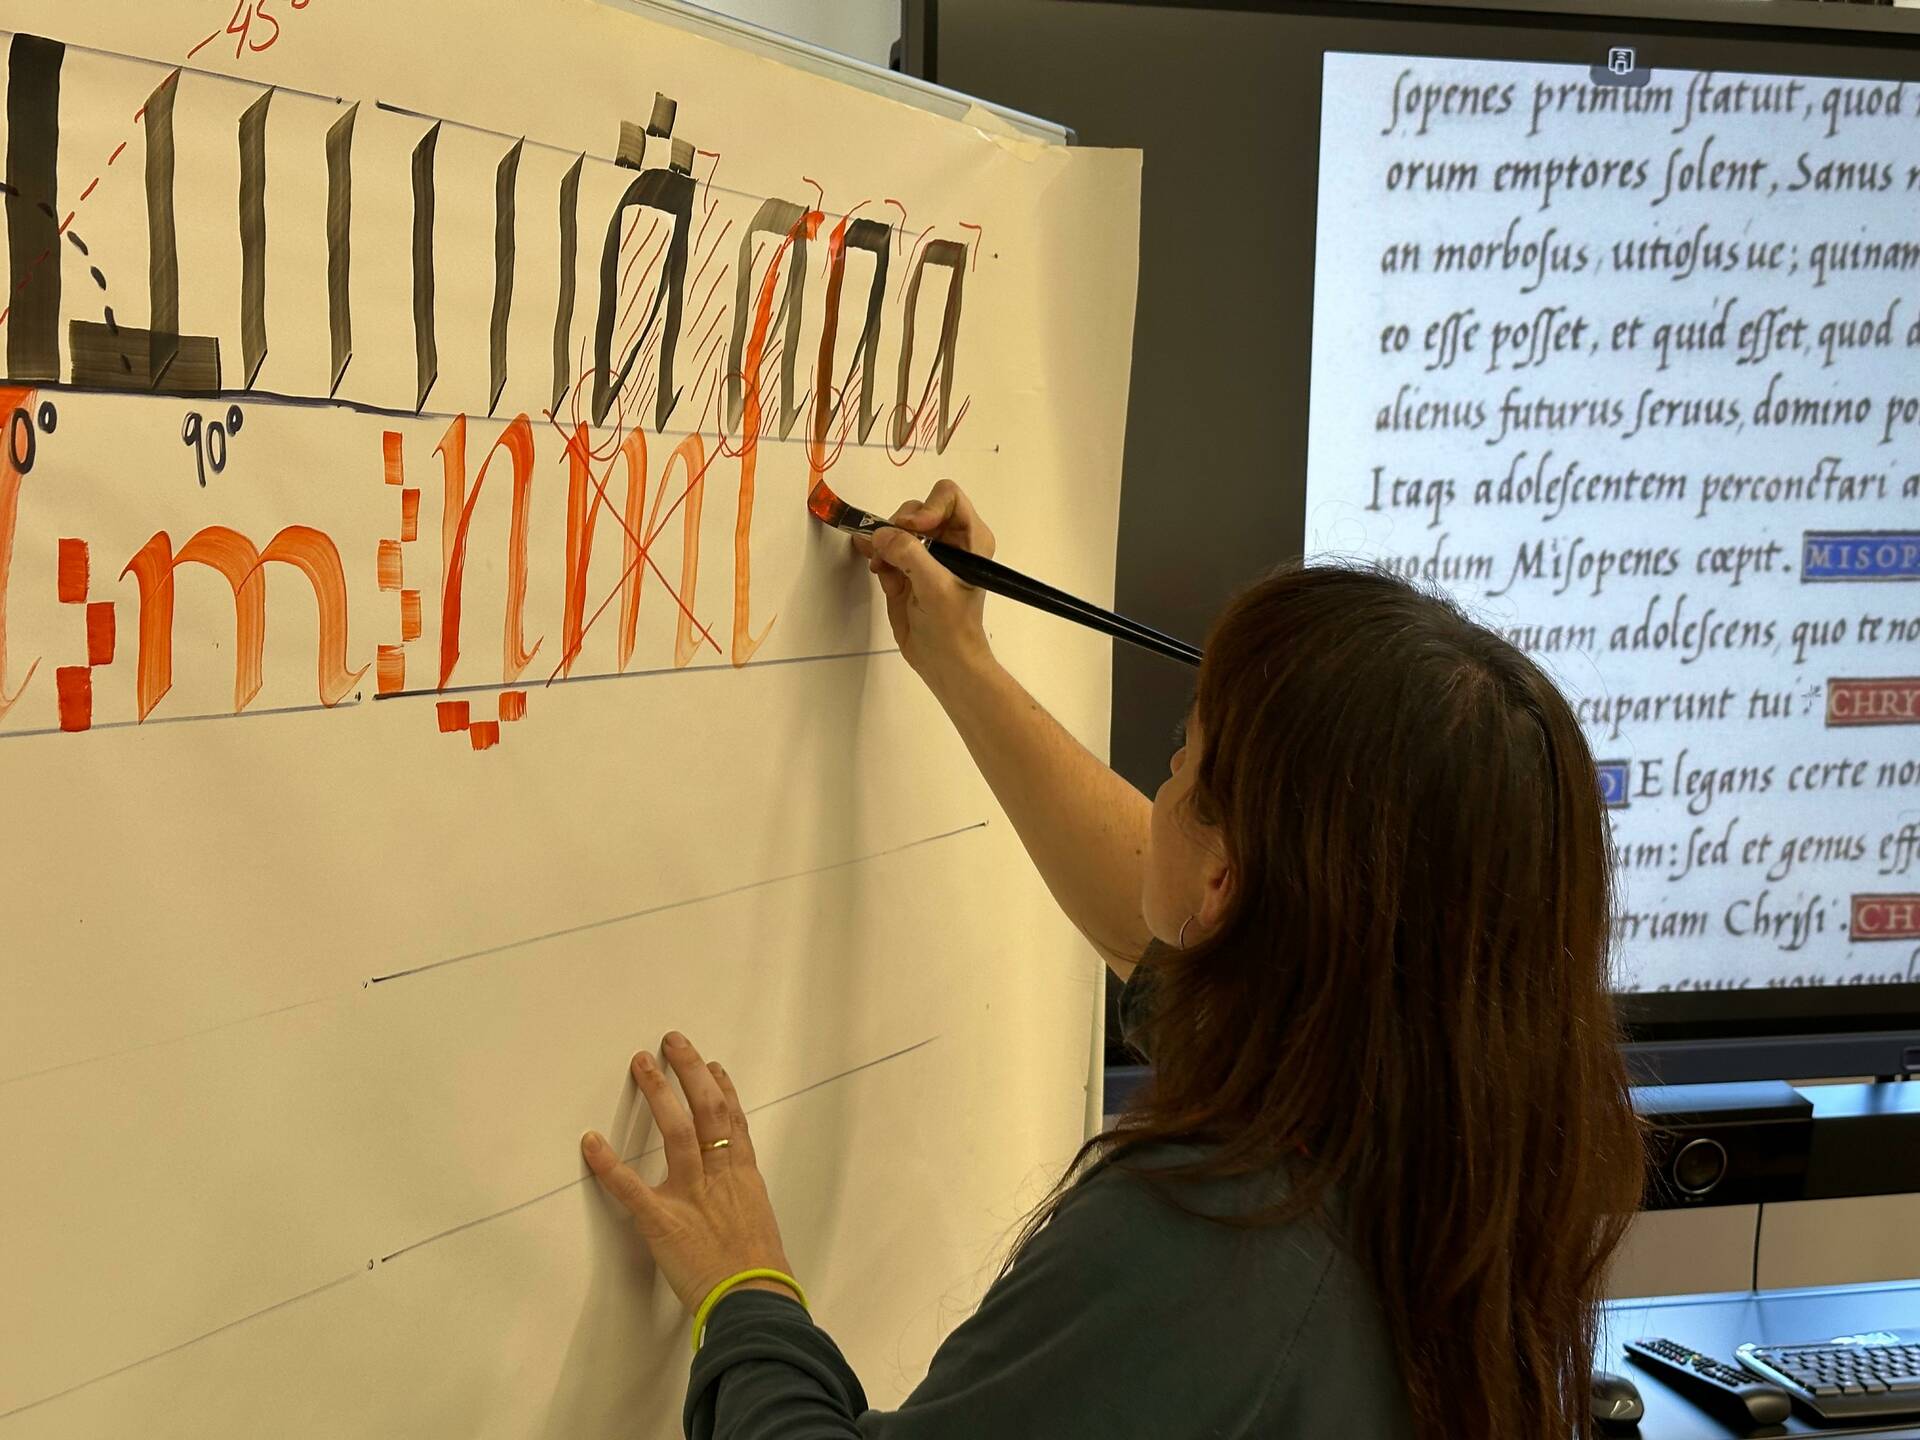 45°
a a a a
0° 90°
m n m l
ſopenes primum ſtatuit, quod
orum emptores ſolent, Sanus
an morboſus, uitioſus ue; quinam
eo eſſe poſſet, et quid eſſet, quod
alienus futurus ſeruus, domino
Itaqꝫ adoleſcentem perconctari a
modum Miſopenes cœpit. MISOP
quam, adoleſcens, quo te no
cuparunt tui: CHRY
O Elegans certe
um: ſed et genus
triam Chryſi. CH
genus non